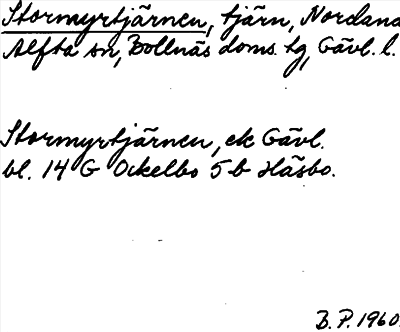 Stormyrtjärnen, tjärn, Nordana
Alfta sn, Bollnäs doms. tg, Gävl. l.
Stormyrtjärnen, ek Gävl.
bl. 14 G Ockelbo 5b Häsbo.
B.P. 1960.